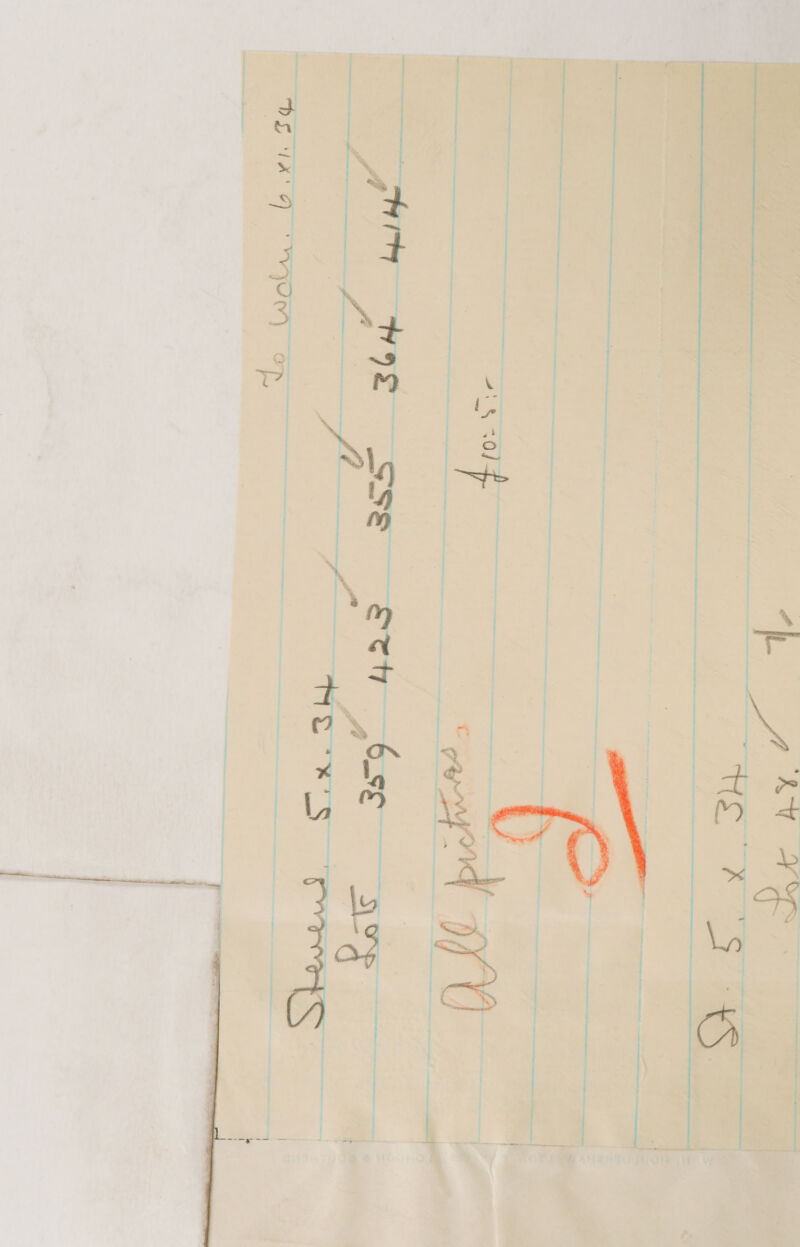 To Wdn. 6.XI.34
Stevens 5.X.34
Lots 359 423 355 364 414
all pictures.
£10:5:-
2/
St. 5.X.34.
Lot 48. 7/-